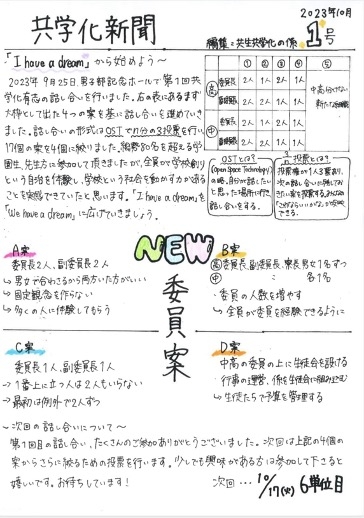 2023年10月
共学化新聞
編集：共生共学化の係
1号
「I have a dream」から始めよう〜
2023年9月25日、男子部記念ホールで第1回共
学化有志の話し合いを行いました。右の表にあるます
大枠として出た4つの案を基に話し合いを進めていき
ました。話し合いの形式はOSTでn分の3投票を行い、
17個の案を4個に絞りました。総勢80名を超える学
園生、先生方に参加して頂きましたが、全員が学校創り
という自治を体験し、学校という社会を動かす力がある
ことを実感できていたと思います。「I have a dream」を
「We have a dream」に広げていきましょう。
① ② ③ ④ ⑤
高 委員長 2人 1人 2人 1人
副委員長 2人 1人 1人 2人
中 委員長 2人 1人 2人 1人
副委員長 2人 1人 1人 2人
中高分けない
新たな組織
OSTとは？
(Open Space Technology)
の略。自分が話したい
と思った場所に行き
話し合いをする。
投票とは？
NEW
委員案
A案
委員長2人、副委員長2人
→男女で合わさるから両方いた方がいい
→固定観念を作らない
→多くの人に体験してもらう
B案
高 委員長、副委員長、寮長男女1名ずつ
中 〃 各1名
・委員の人数を増やす
→全員が委員を経験できるように
C案
委員長1人、副委員長1人
→1番上に立つ人は2人もいらない
→最初は例外で2人ずつ
D案
中高の委員の上に生徒会を設ける
行事の運営、係を生徒会に組み込む
→生徒たちで予算を管理する
〜次回の話し合いについて〜
第1回目の話し合い、たくさんのご参加ありがとうございました。次回は上記の4個の
案からさらに絞るための投票を行います。少しでも興味がある方は参加して下さると
嬉しいです。お待ちしています！
次回…10/17(火) 6単位目